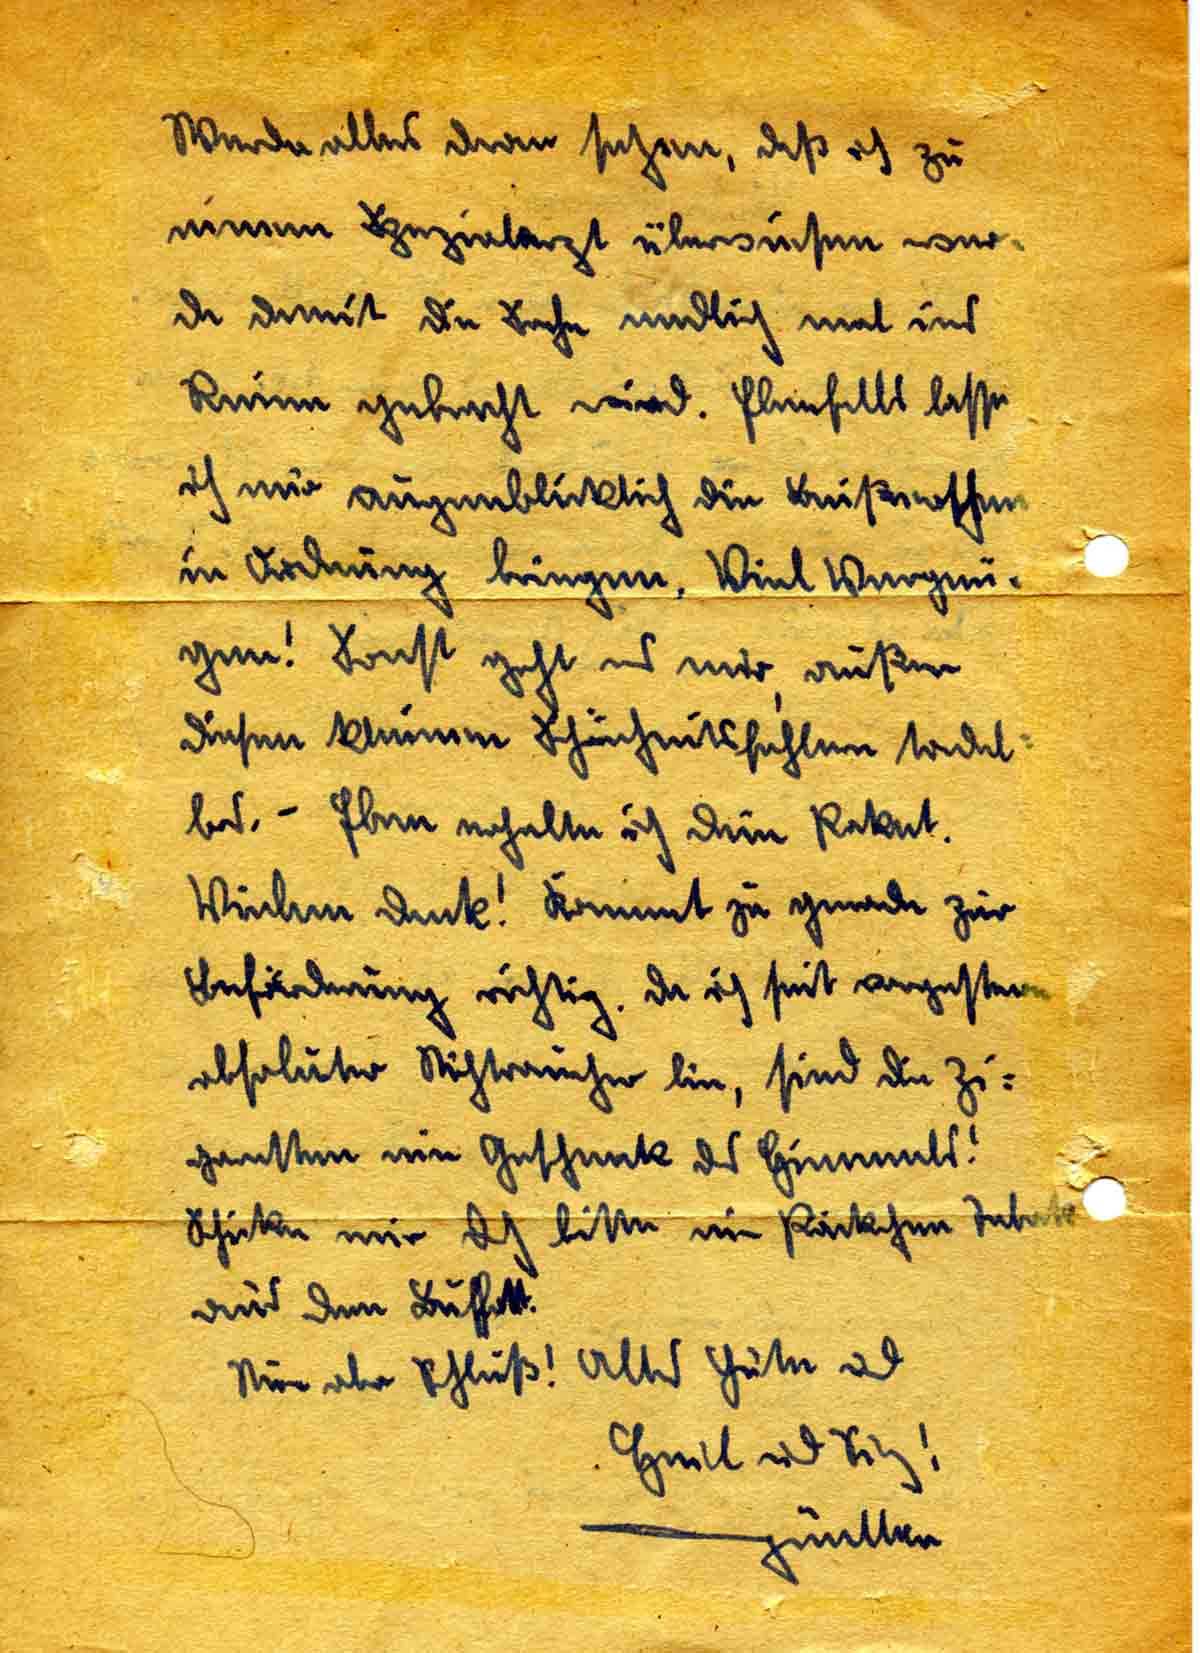 Werde alles dran setzen, daß ich zu
einem Spezialarzt überwiesen wer-
de damit die Sache endlich mal ins
Reine gebracht wird. Ebenfalls lasse
ich mir augenblicklich die Beißerchen
in Ordnung bringen. Viel Vergnü-
gen! Sonst geht es mir, außer
diesen kleinen Schönheitsfehlern tadel-
los. – Eben erhalte ich dein Paket.
Vielen Dank! Kommt ja gerade zur
Beförderung richtig. Da ich seit vorgestern
absoluter Nichtraucher bin, sind die Zi-
garetten ein Geschenk des Himmels!
Schicke mir doch bitte ein Päckchen Tabak
aus dem Buffett.
Nun aber Schluß! Alles Gute und
Heil und Sieg!